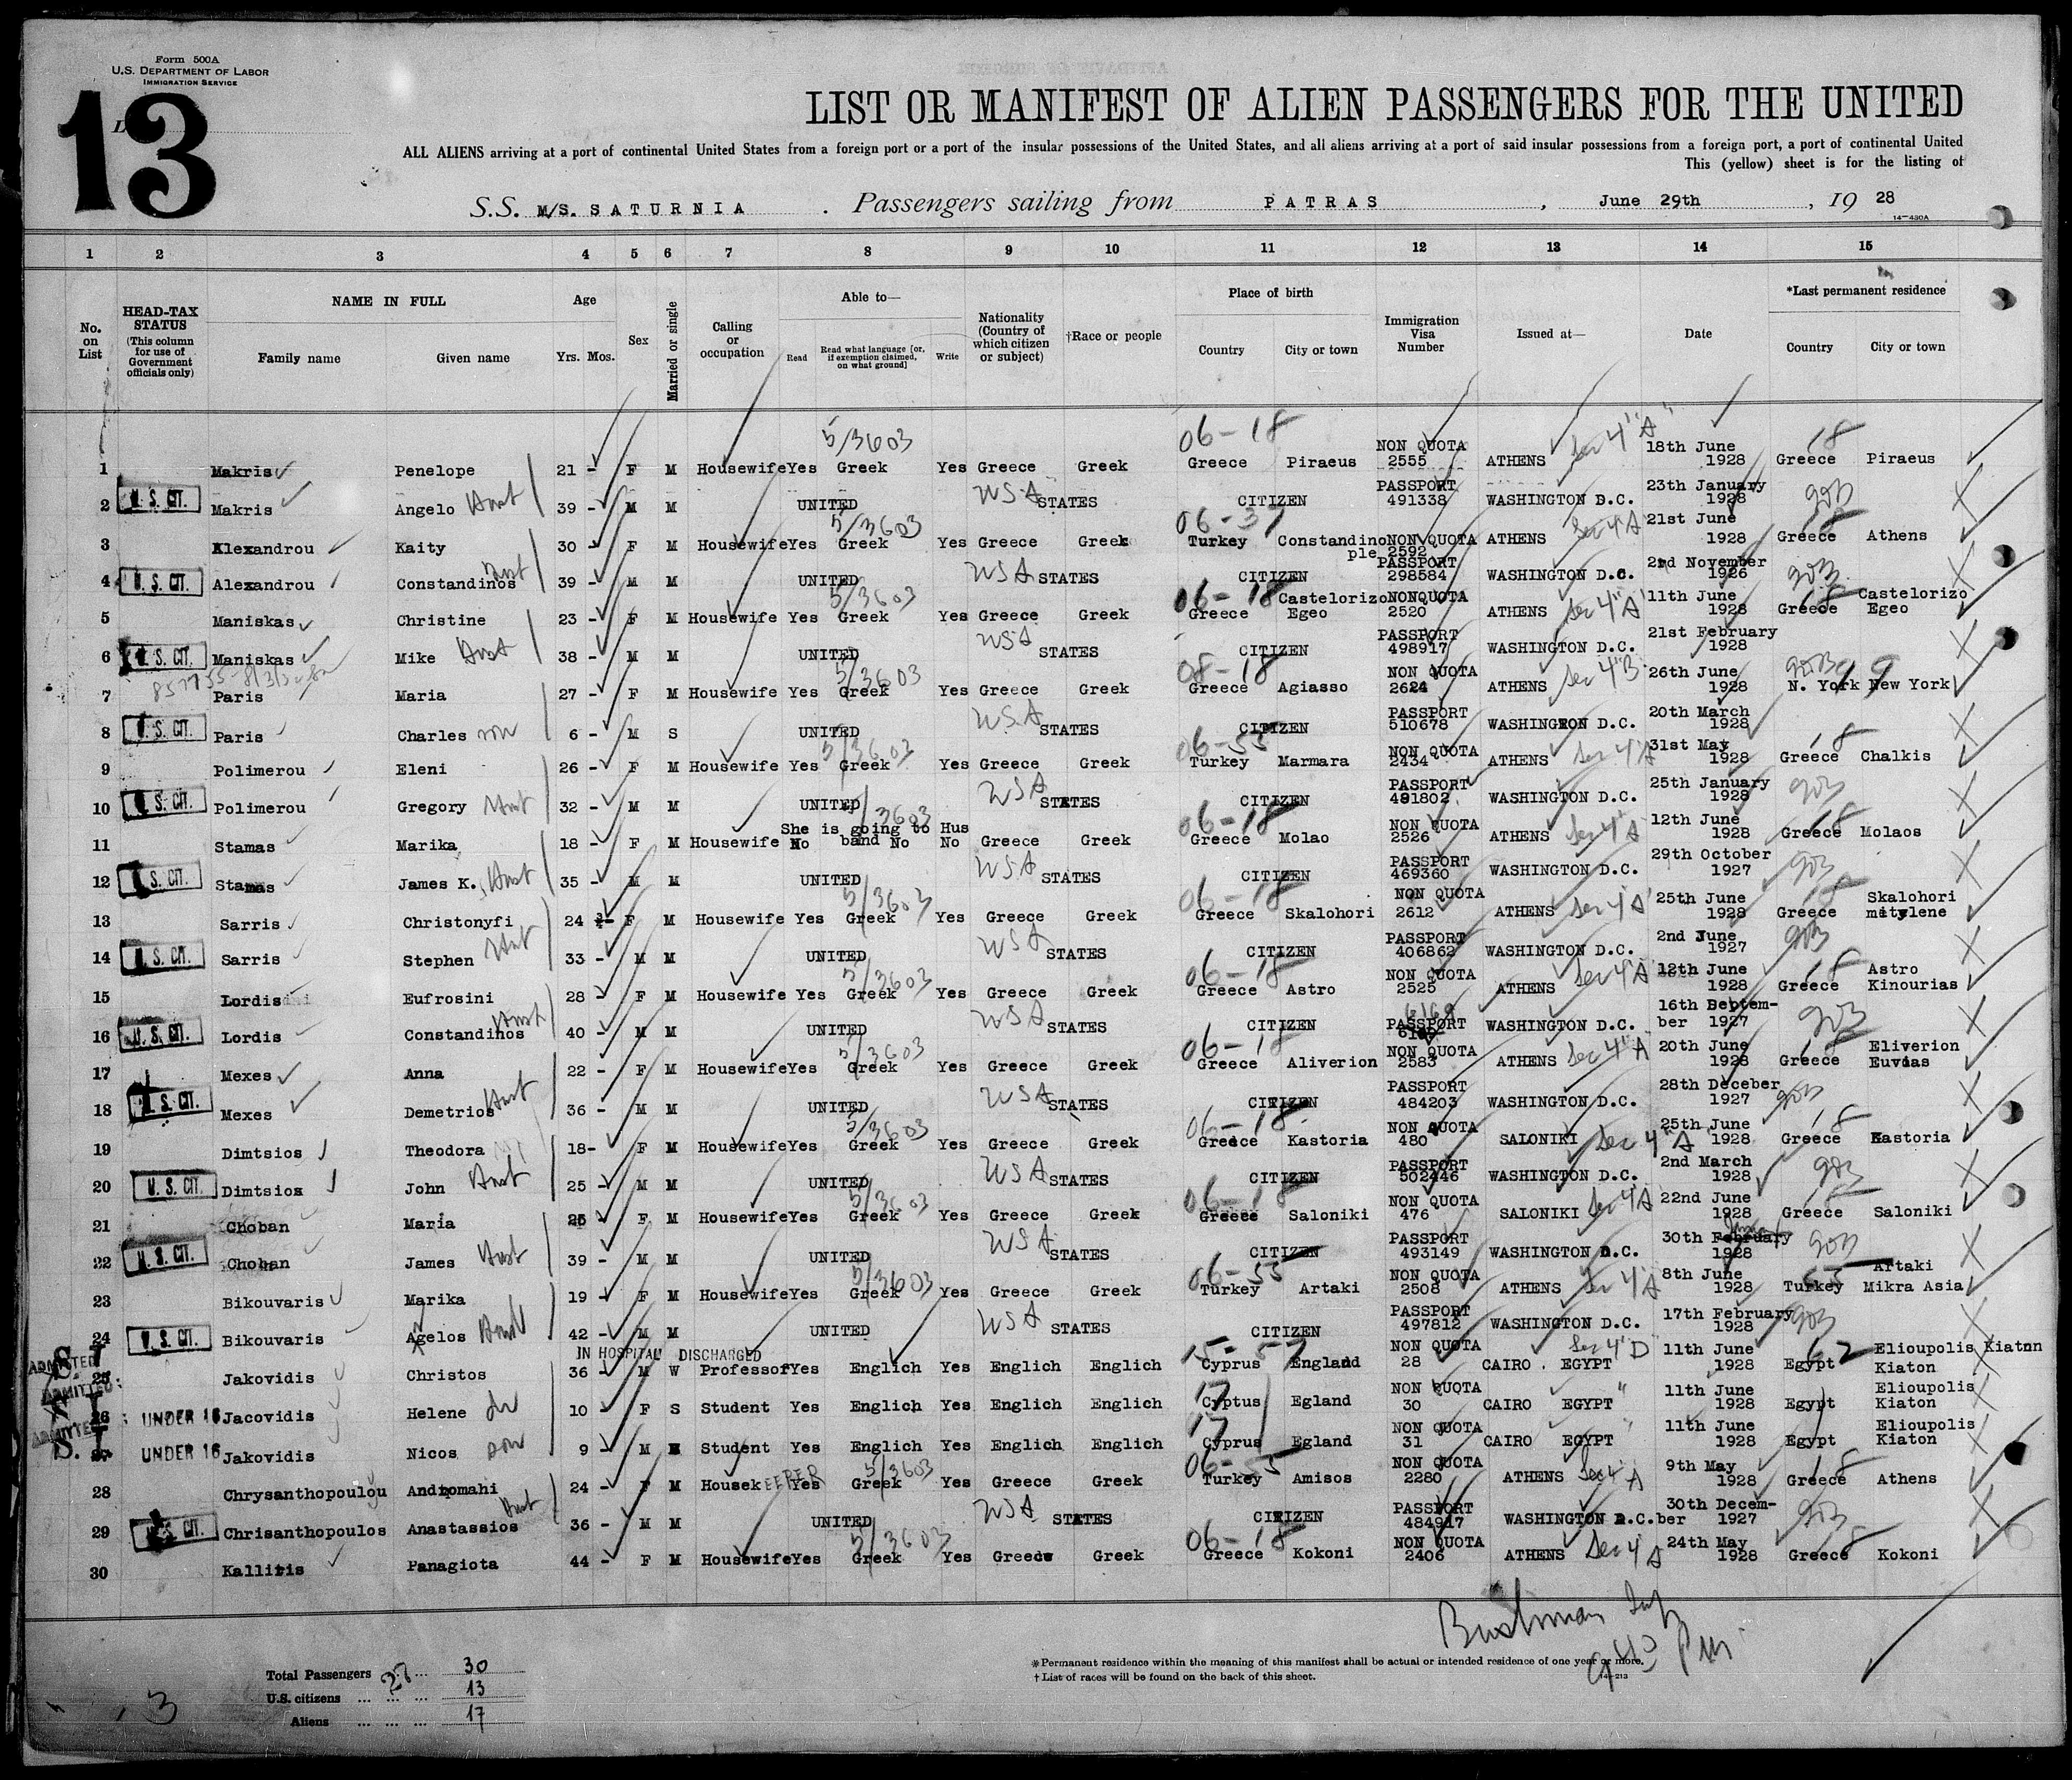 Form 500A
U.S. DEPARTMENT OF LABOR
IMMIGRATION SERVICE
13
LIST OR MANIFEST OF ALIEN PASSENGERS FOR THE UNITED
ALL ALIENS arriving at a port of continental United States from a foreign port or a port of the insular possessions of the United States, and all aliens arriving at a port of said insular possessions from a foreign port, a port of continental United
This (yellow) sheet is for the listing of
S.S. M/S. SATURNIA . Passengers sailing from PATRAS , June 29th , 19 28
14—430A
1 2 3 4 5 6 7 8 9 10 11 12 13 14 15
No. on List
HEAD-TAX STATUS (This column for use of Government officials only)
NAME IN FULL Family name Given name
Age Yrs. Mos.
Sex
Married or single
Calling or occupation
Able to— Read Read what language [or, if exemption claimed, on what ground] Write
Nationality (Country of which citizen or subject)
†Race or people
Place of birth Country City or town
Immigration Visa Number
Issued at—
Date
*Last permanent residence Country City or town
5/3603 06-18 NON QUOTA Sec 4"A" 18th June 18
1 Makris Penelope 21 - F M Housewife Yes Greek Yes Greece Greek Greece Piraeus 2555 ATHENS 1928 Greece Piraeus
U.S. CIT. USA PASSPORT 23th January
2 Makris Angelo Hust 39 - M M UNITED STATES CITIZEN 491338 WASHINGTON D.C. 1928
5/3603 06-37 Sec 4"A" 21st June 18
3 Alexandrou Kaity 30 - F M Housewife Yes Greek Yes Greece Greek Turkey Constandinople NON QUOTA 2592 ATHENS 1928 Greece Athens
U.S. CIT. Hust USA PASSPORT 2nd November
4 Alexandrou Constandinos 39 - M M UNITED STATES CITIZEN 298584 WASHINGTON D.C. 1926
5/3603 06-18 Castelorizo NONQUOTA Sec 4"A" 11th June 18 Castelorizo
5 Maniskas Christine 23 - F M Housewife Yes Greek Yes Greece Greek Greece Egeo 2520 ATHENS 1928 Greece Egeo
U.S. CIT. USA PASSPORT 21st February
6 Maniskas Mike Hust 38 - M M UNITED STATES CITIZEN 498917 WASHINGTON D.C. 1928
5/3603 08-18 NON QUOTA Sec 4"B 26th June 99
7 Paris Maria 27 - F M Housewife Yes Greek Yes Greece Greek Greece Agiasso 2624 ATHENS 1928 N. York New York
U.S. CIT. USA PASSPORT 20th March
8 Paris Charles son 6 - M S UNITED STATES CITIZEN 510678 WASHINGTON D.C. 1928
5/3603 06-55 NON QUOTA Sec 4"A 31st May 18
9 Polimerou Eleni 26 - F M Housewife Yes Greek Yes Greece Greek Turkey Marmara 2434 ATHENS 1928 Greece Chalkis
U.S. CIT. USA PASSPORT 25th January
10 Polimerou Gregory Hust 32 - M M UNITED STATES CITIZEN 491802 WASHINGTON D.C. 1928
5/3603 She is going to Hus 06-18 NON QUOTA Sec 4"A 12th June 18
11 Stamas Marika 18 - F M Housewife No band No No Greece Greek Greece Molao 2526 ATHENS 1928 Greece Molaos
U.S. CIT. USA PASSPORT 29th October
12 Stamas James K., Hust 35 - M M UNITED STATES CITIZEN 469360 WASHINGTON D.C. 1927
5/3603 06-18 NON QUOTA Sec 4"A" 25th June 18 Skalohori
13 Sarris Christonyfi 24 - F M Housewife Yes Greek Yes Greece Greek Greece Skalohori 2612 ATHENS 1928 Greece mitylene
U.S. CIT. Hust USA PASSPORT 2nd June
14 Sarris Stephen 33 - M M UNITED STATES CITIZEN 406862 WASHINGTON D.C. 1927
5/3603 06-18 NON QUOTA Sec 4"A" 12th June 18 Astro
15 Lordis Eufrosini 28 - F M Housewife Yes Greek Yes Greece Greek Greece Astro 2525 ATHENS 1928 Greece Kinourias
U.S. CIT. Hust USA 6169 16th Septem-
16 Lordis Constandinos 40 - M M UNITED STATES CITIZEN PASSPORT WASHINGTON D.C. ber 1927
5/3603 06-18 NON QUOTA Sec 4"A" 20th June 18 Eliverion
17 Mexes Anna 22 - F M Housewife Yes Greek Yes Greece Greek Greece Aliverion 2583 ATHENS 1928 Greece Euvoias
U.S. CIT. Hust USA PASSPORT 28th Deceber
18 Mexes Demetrios 36 - M M UNITED STATES CITIZEN 484203 WASHINGTON D.C. 1927
5/3603 06-18 NON QUOTA Sec 4"A" 25th June 18
19 Dimtsios Theodora 18- F M Housewife Yes Greek Yes Greece Greek Greece Kastoria 480 SALONIKI 1928 Greece Kastoria
U.S. CIT. USA PASSPORT 2nd March
20 Dimtsios John Hust 25 - M M UNITED STATES CITIZEN 502446 WASHINGTON D.C. 1928
5/3603 06-18 NON QUOTA Sec 4"A 22nd June 18
21 Choban Maria 25 F M Housewife Yes Greek Yes Greece Greek Greece Saloniki 476 SALONIKI 1928 Greece Saloniki
U.S. CIT. USA PASSPORT 30th January
22 Choban James Hust 39 - M M UNITED STATES CITIZEN 493149 WASHINGTON D.C. 1928
5/3603 06-55 NON QUOTA Sec 4"A 8th June Artaki
23 Bikouvaris Marika 19 - F M Housewife Yes Greek Yes Greece Greek Turkey Artaki 2508 ATHENS 1928 Turkey Mikra Asia
U.S. CIT. USA PASSPORT 17th February
24 Bikouvaris Agelos Hust 42 - M M UNITED STATES CITIZEN 497812 WASHINGTON D.C. 1928
ADMITTED S. I. IN HOSPITAL DISCHARGED 15-57 NON QUOTA Sec 4"D" 11th June 62 Elioupolis Kiaton
25 Jakovidis Christos 36 - M W Professor Yes Englich Yes Englich Englich Cyprus England 28 CAIRO . EGYPT 1928 Egypt Kiaton
ADMITTED 17 NON QUOTA " 11th June Elioupolis
26 UNDER 16 Jacovidis Helene 10 - F S Student Yes Englich Yes Englich Englich Cyptus Egland 30 CAIRO EGYPT 1928 Egypt Kiaton
ADMITTED S. I. 17 NON QUOTA " 11th June Elioupolis
27 UNDER 16 Jakovidis Nicos son 9 - M Student Yes Englich Yes Englich Englich Cyprus Egland 31 CAIRO EGYPT 1928 Egypt Kiaton
5/3603 06-55 NON QUOTA Sec 4"A 9th May 18
28 Chrysanthopoulou Andromahi 24 - F M HousekEEPER Yes Greek Yes Greece Greek Turkey Amisos 2280 ATHENS 1928 Greece Athens
U.S. CIT. Hust USA PASSPORT 30th Decem-
29 Chrisanthopoulos Anastassios 36 - M M UNITED STATES CITIZEN 484917 WASHINGTON D.C. ber 1927
5/3603 06-18 NON QUOTA Sec 4"A 24th May 18
30 Kallitis Panagiota 44 - F M Housewife Yes Greek Yes Greece Greek Greece Kokoni 2406 ATHENS 1928 Greece Kokoni
Bushman Insp
Total Passengers ... 30
U.S. citizens ... ... ... 13
Aliens ... ... ... 17
27
3
*Permanent residence within the meaning of this manifest shall be actual or intended residence of one year or more.
†List of races will be found on the back of this sheet.
14—213